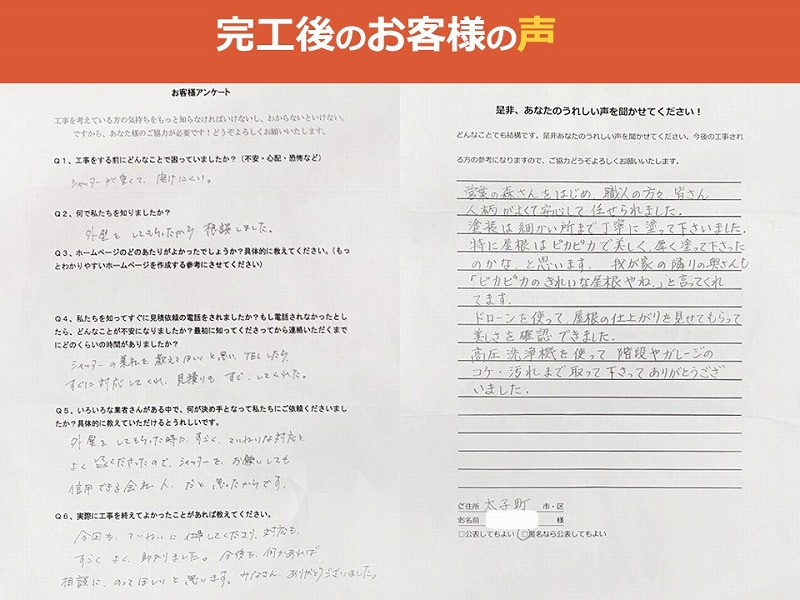 完工後のお客様の声
お客様アンケート
工事を考えている方の気持ちをもっと知らなければいけないし、わからないといけない。
ですから、あなた様のご協力が必要です！どうぞよろしくお願いいたします。
Q1、工事をする前にどんなことで困っていましたか？（不安・心配・恐怖など）
シャッターが重くて、開けにくい。
Q2、何で私たちを知りましたか？
外壁をしてもらったから 相談しました。
Q3、ホームページのどのあたりがよかったでしょうか？具体的に教えてください。（もっ
とわかりやすいホームページを作成する参考にさせてください）
Q4、私たちを知ってすぐに見積依頼の電話をされましたか？もし電話されなかったとし
たら、どんなことが不安になりましたか？最初に知ってくださってから連絡いただくまで
にどのくらいの時間がありましたか？
シャッターの業社を教えてほしいと思い、TELしたら、
すぐに対応してくれ、見積りもすぐ、してくれた。
Q5、いろいろな業者さんがある中で、何が決め手となって私たちにご依頼くださいまし
たか？具体的に教えていただけるとうれしいです。
外壁をしてもらった時に、すごく、ていねいな対応と、
よくくださったので、シャッターを、お願いしても
信用できる会社、人、だと思ったからです。
Q6、実際に工事を終えてよかったことがあれば教えてください。
今回も、ていねいに仕事してくださり、対応も、
すごくよく、助かりました。今後も、何かあれば
相談に、のってほしいと思います。みなさん、ありがとうございました。
是非、あなたのうれしい声を聞かせてください！
どんなことでも結構です。是非あなたのうれしい声を聞かせてください。今後の工事され
る方の参考になりますので、ご協力どうぞよろしくお願いいたします。
営業の森さんをはじめ、職人の方々、皆さん
人柄がよくて安心して任せられました。
塗装は細かい所まで丁寧に塗って下さいました。
特に屋根はピカピカで美しく、厚く塗って下さった
のかな、と思います。 我が家の隣りの奥さんも
「ピカピカのきれいな屋根やね。」と言ってくれ
てます。
ドローンを使って、屋根の仕上がりを見せてもらって
美しさを確認できました。
高圧洗浄機を使って 階段やガレージの
コケ・汚れまで取って下さってありがとうござ
いました。
ご住所 太子町 市・区
お名前 様
□公表してもよい □匿名なら公表してもよい